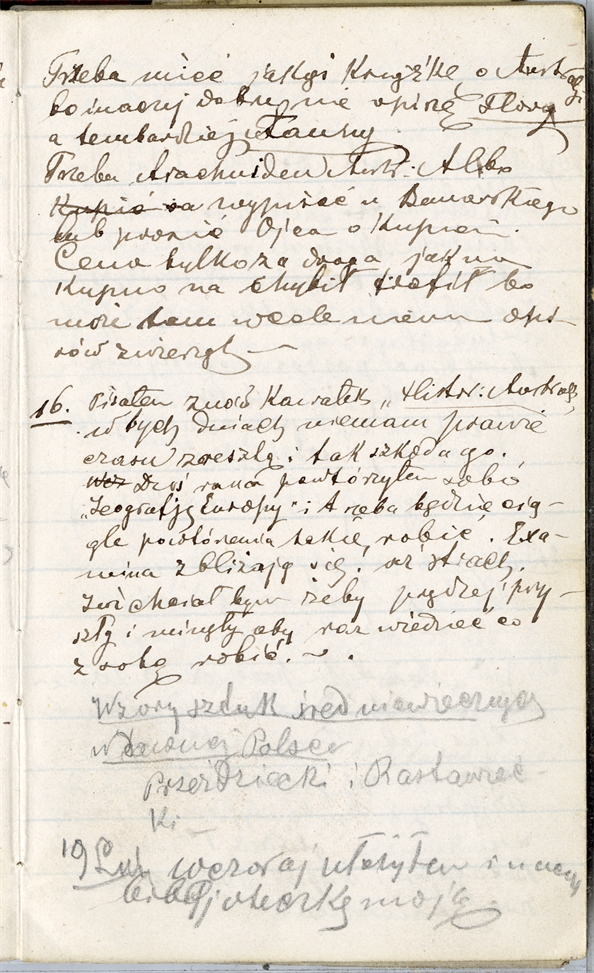 Trzeba mieć jakąś Książkę o Austral
bo inaczej dobrze nie opiszę Flory
a tembardziej Fauny
Trzeba Arachniden Austr: Albo
Kupić wypisać u Danowskiego
lub prosić Ojca o Kupień.
Cena tylko za droga jak na
Kupno na chybił trafił bo
może tam wcale niema opi-
sów zwierząt —
16. Pisałem znów Kawałek „Histor: Australj,
w tych dniach niemam prawie
czasu zresztą i tak szkoda go.
Dziś rano powtórzyłem sobie
„Geografję Europy" i trzeba będzie cią-
gle powtórzenia takie robić. Exa-
mina zbliżają się. aż strach.
chciałbym żeby prędzej przy-
szły i minęły aby raz wiedzieć co
z sobą robić. ~ .
Wzory sztuk średniowiecznych
w dawnej Polsce
Przezdziecki i Rastawiec-
Ki —
19) wczoraj ułożyłem inaczej
bibljoteczkę moją